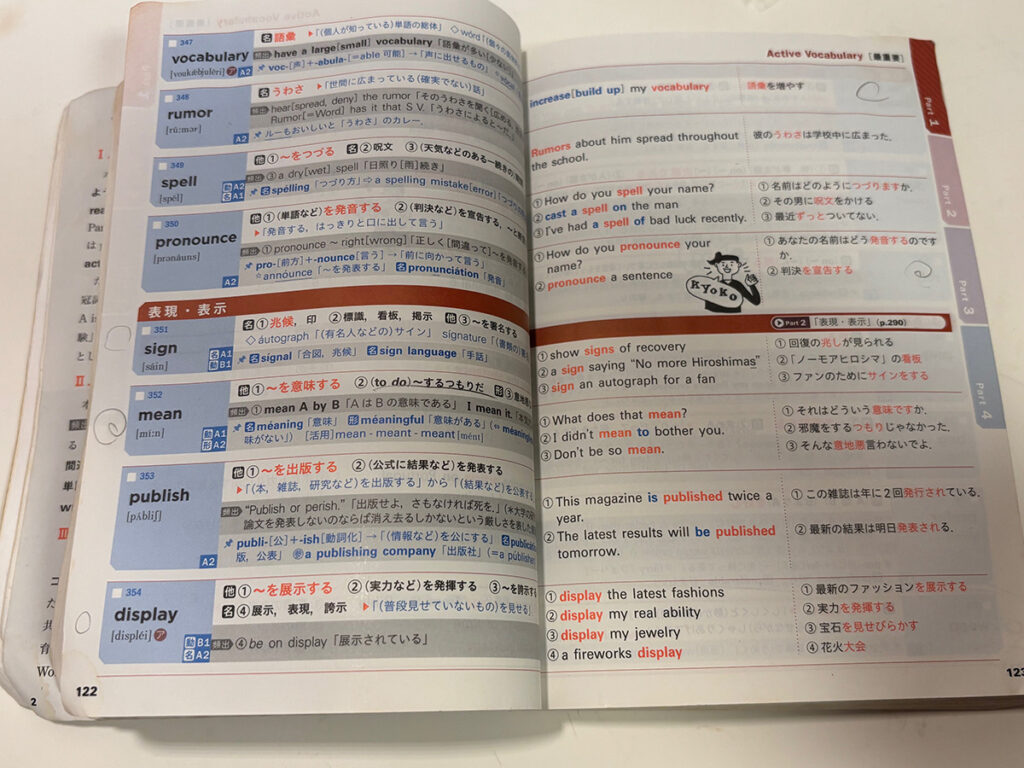 347
vocabulary
[voukǽbjulèri] ア A2
名 語彙 ▶「(個人が知っている)単語の総体」 ◇wórd
頻出 have a large[small] vocabulary「語彙が多い[少な
voc-[声]+-abula-[=able 可能] →「声に出せるもの」
348
rumor
[rúːmər]
A2
名 うわさ ▶「世間に広まっている(確実でない)話」
頻出 hear[spread, deny] the rumor「そのうわさを聞く[広め
Rumor[=Word] has it that S V.「うわさによると~だ」
ルーもおいしいと「うわさ」のカレー.
349
spell
[spél]
動 A2
名 A1
他 ①~をつづる 名 ②呪文 ③(天気などのある一続きの)期間
頻出 ③ a dry[wet] spell「日照り[雨]続き」
名 spélling「つづり方」⇨ a spelling mistake[error]「つづりの
350
pronounce
[prənáuns]
A2
他 ①(単語など)を発音する ②(判決など)を宣告する,
▶「発音する, はっきりと口に出して言う」
頻出 ① pronounce ~ right[wrong]「正しく[間違って]~を発音
pro-[前方]+-nounce[言う] →「前に向かって言う」
☆annóunce「~を発表する」 名 pronunciátion「発音」
表現・表示
351
sign
[sáin]
名 A1
動 B1
名 ①兆候, 印 ②標識, 看板, 掲示 他 ③~を署名する
◇áutograph「(有名人などの)サイン」 signature「(書類の)
名 sígnal「合図, 兆候」 名 sign language「手話」
352
mean
[míːn]
動 A1
形 A2
他 ①~を意味する ②(to do)~するつもりだ 形 ③意地悪
頻出 ① mean A by B「A は B の意味である」 I mean it.「本気
名 méaning「意味」 形 méaningful「意味がある」(⇔ méaningle
味がない」) [活用] mean - meant - meant [mént]
353
publish
[pʌ́bliʃ]
A2
他 ①~を出版する ②(公式に結果など)を発表する
▶「(本, 雑誌, 研究など)を出版する」から「(結果など)を公表
頻出 “Publish or perish.”「出版せよ, さもなければ死を.」(*大学の
論文を発表しないのならば消え去るしかないという厳しさを表した
publi-[公]+-ish[動詞化] →「(情報など)を公にする」 名 públicát
版, 公表」 a publishing company「出版社」(=a publisher
354
display
[displéi] ア
動 B1
名 A2
他 ①~を展示する ②(実力など)を発揮する ③~を誇示する
名 ④展示, 表現, 誇示 ▶「(普段見せていないもの)を見せる」
頻出 ④ be on display「展示されている」
122
2
Active Vocabulary [最重要]
increase[build up] my vocabulary 語彙を増やす
Rumors about him spread throughout
the school.
彼のうわさは学校中に広まった.
① How do you spell your name?
② cast a spell on the man
③ I've had a spell of bad luck recently.
① 名前はどのようにつづりますか.
② その男に呪文をかける
③ 最近ずっとついてない.
① How do you pronounce your
name?
② pronounce a sentence
① あなたの名前はどう発音するのです
か.
② 判決を宣告する
KYOKO
Part 2 「表現・表示」 (p.290)
① show signs of recovery
② a sign saying “No more Hiroshimas”
③ sign an autograph for a fan
① 回復の兆しが見られる
② 「ノーモアヒロシマ」の看板
③ ファンのためにサインをする
① What does that mean?
② I didn't mean to bother you.
③ Don't be so mean.
① それはどういう意味ですか.
② 邪魔をするつもりじゃなかった.
③ そんな意地悪言わないでよ.
① This magazine is published twice a
year.
② The latest results will be published
tomorrow.
① この雑誌は年に2回発行されている.
② 最新の結果は明日発表される.
① display the latest fashions
② display my real ability
③ display my jewelry
④ a fireworks display
① 最新のファッションを展示する
② 実力を発揮する
③ 宝石を見せびらかす
④ 花火大会
Part 1
Part 2
Part 3
Part 4
123